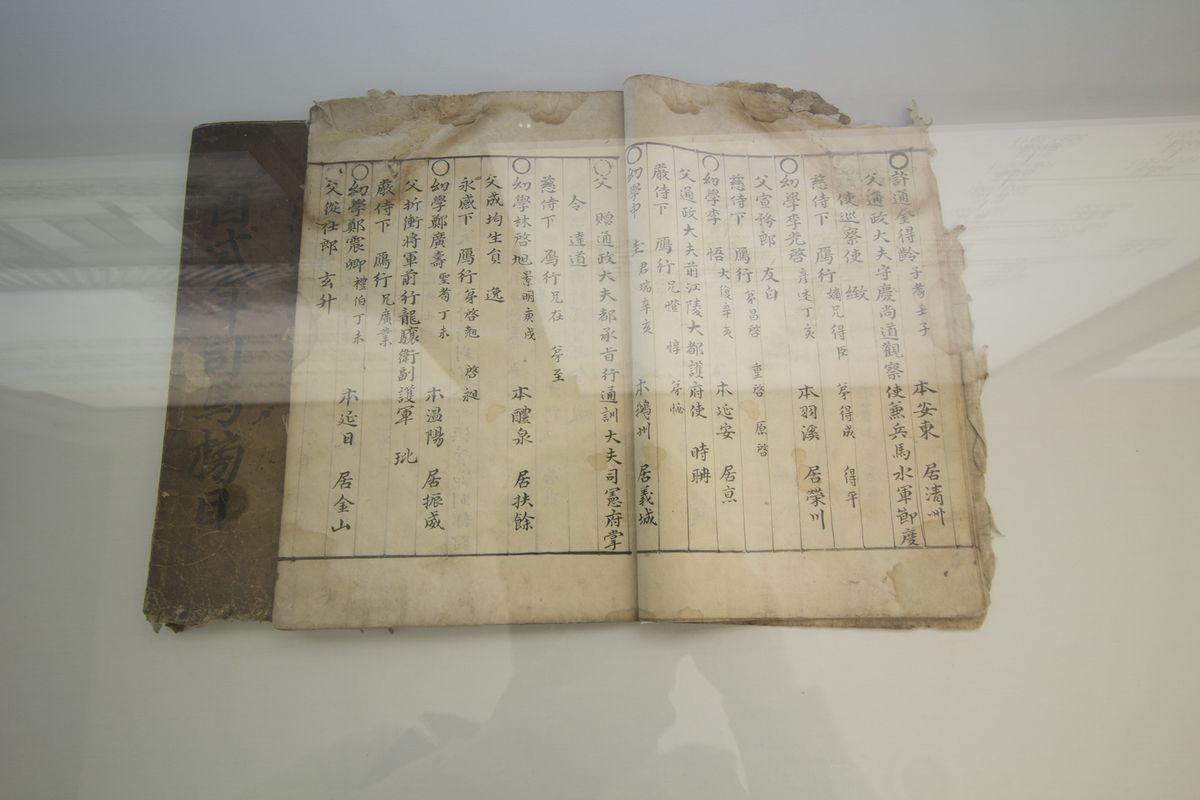 許通金得齡 子耈 士子 本安東 居清州
父通政大夫守慶尚道觀察使兼兵馬水軍節度
使巡察使 緻
慈侍下 鴈行 嫡兄得臣 苐得成 得平
幼學李光啓 彦述 丁亥 本羽溪 居榮川
父宣務郎 友白
慈侍下 鴈行 苐昌啓 重啓 原啓
幼學李 悟 大復 辛亥 本延安 居京
父通政大夫前江陵大都護府使 時聃
嚴侍下 鴈行 兄憕 惇 苐怭
幼學申 圭 君瑞 辛亥 本鵝州 居義城
父 贈通政大夫都承旨行通訓大夫司憲府掌
令 達道
慈侍下 鴈行 兄在 苐至
幼學林啓旭 景明 庚戌 本醴泉 居扶餘
父成均生員 逸
永感下 鴈行 苐啓 啓昶
幼學鄭廣壽 聖耈 丁未 本溫陽 居振威
父折衝將軍前行龍驤衛副護軍 玭
嚴侍下 鴈行 兄廣業
幼學鄭震卿 禮伯 丁未 本延日 居金山
父從仕郎 玄升
司馬榜目